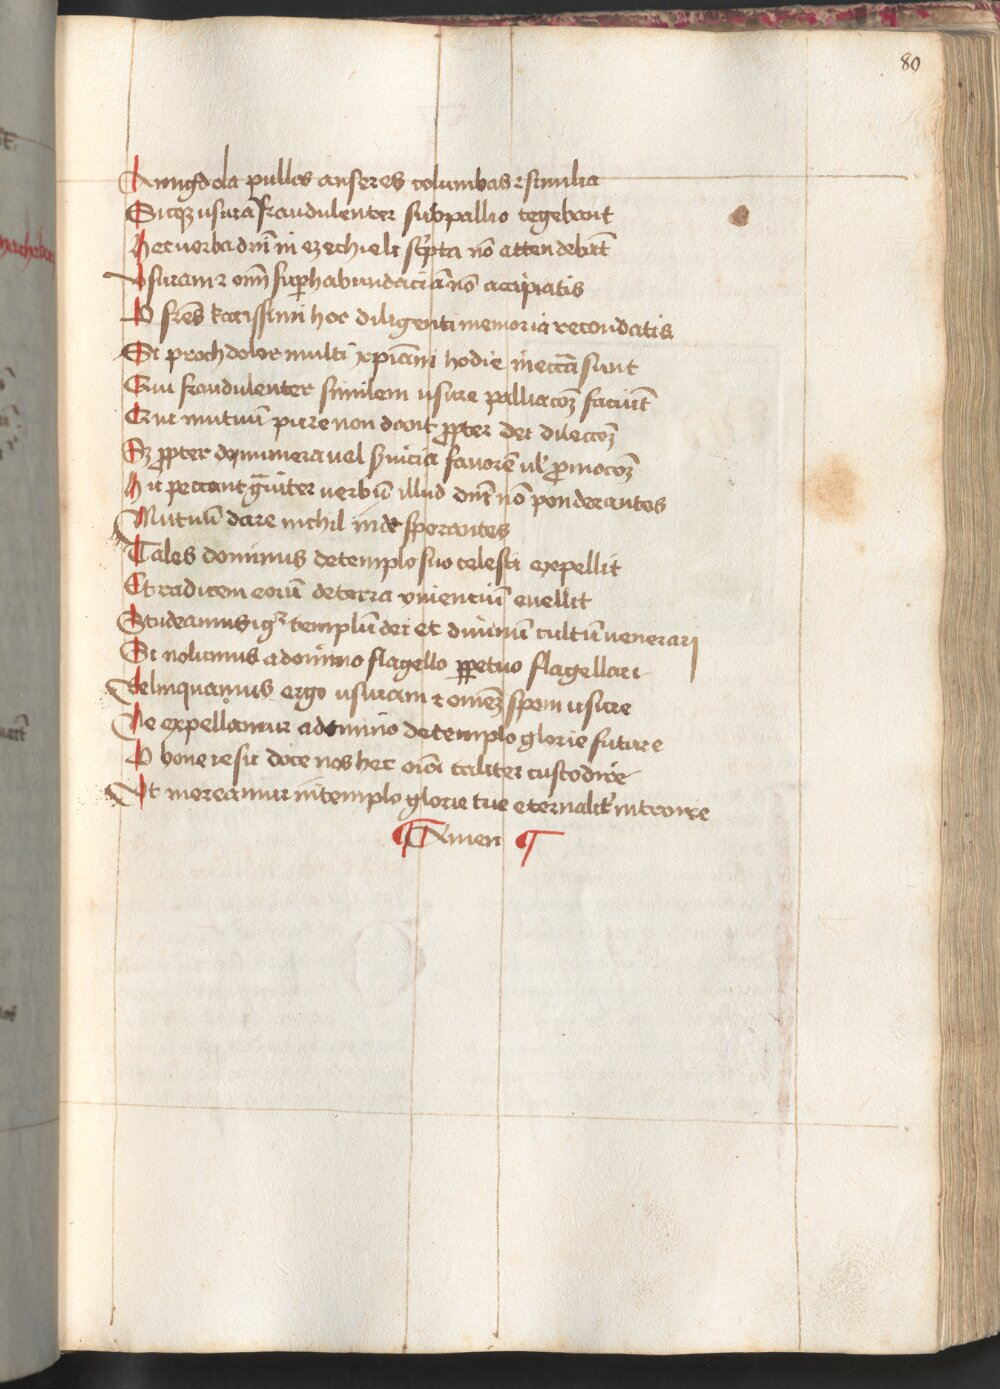 80
Amigdola pullos anseres columbas ⁊ similia
Sicqꝫ usurā fraudulenter sub pallio tegebant
Hec verba dn̄i in ezechiele sc̓pta nō attendebāt
Usuram ⁊ om̄ē suꝑhabundaciā nō accipiatis
O fr̄es karissimi hoc diligenti memoria recondatis
Sꝫ proch dolor multi xp̄iani hodie inuēti sunt
Qui fraudulenter similem usure palliacōꝫ faciūt
Qui mutuū pure non dant ꝓpter dei dileccōꝫ
Sꝫ ꝓpter munera vel seruicia fauorē ul' ꝓmocōꝫ
Hii peccant gͣuiter uerbū illud dn̄i nō ponderantes
Mutuū dare nichil inde sperantes
Tales dominus de templo suo celesti expellit
Et radicem eorū de terra viuenciū euellit
Studeamus igͥ templū dei et diuinū cultū venerari
Si nolumus a domino flagello ꝑpetuo flagellari
Delinquamus ergo usuram ⁊ omēꝫ spem usure
Ne expellamur a domino de templo glorie future
O bone iesu doce nos hec om̄ia taliter custodire
Ut mereamur in templo glorie tue eternalit' introire
¶ Amen ¶